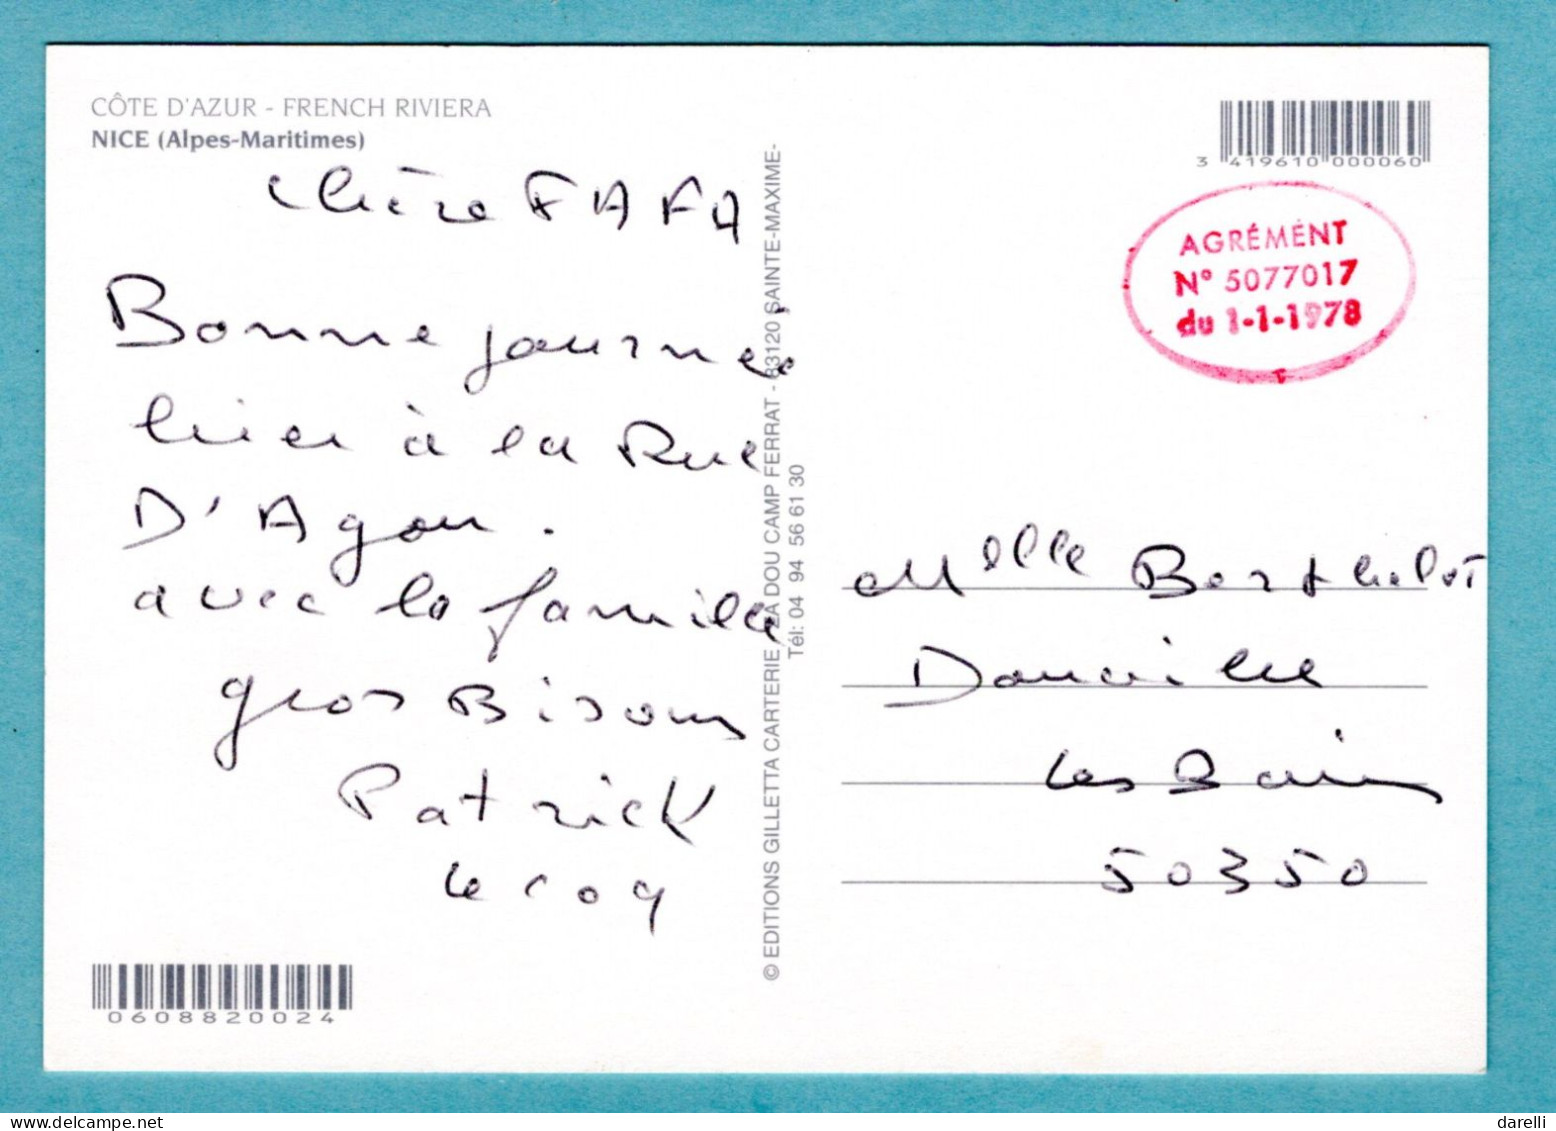 CÔTE D'AZUR - FRENCH RIVIERA
NICE (Alpes-Maritimes)
chère FAFA
Bonne journée
hier à la Rue
D'Agon.
avec la famille
gros Bisous
Patrick
Le coq
0608820024
© EDITIONS GILLETTA CARTERIE - ZA DOU CAMP FERRAT - 83120 SAINTE-MAXIME-
Tél: 04 94 56 61 30
3 419610 000060
AGRÉMENT
N° 5077017
du 1-1-1978
Melle Berthelot
Donville
les Bains
50350
darelli